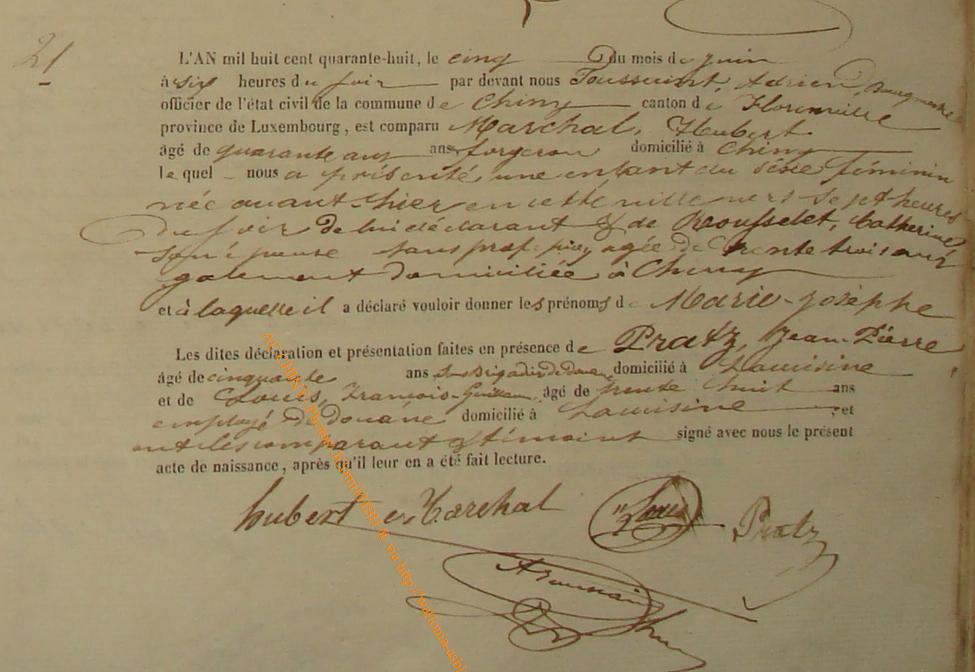 21
L'AN mil huit cent quarante-huit, le cinq du mois de juin
à six heures du soir par devant nous Toussaint, Adrien, Bourgmestre
officier de l'état civil de la commune de Chiny canton de Florenville
province de Luxembourg, est comparu Marchal, Hubert
âgé de quarante ans ans forgeron domicilié à Chiny
lequel nous a présenté, une enfant du sexe féminin
née avant hier en cette ville vers sept heures
du soir de lui déclarant & de Rousselet, Catherine
son épouse sans profession agée de trente trois ans
galement domiciliée à Chiny
et à laquelle il a déclaré vouloir donner les prénoms de Marie-Josèphe
Les dites déclaration et présentation faites en présence de Pratz, Jean-Pierre
âgé de cinquante ans Sous Brigadier de douane domicilié à Lacuisine
et de Louis, François-Guillaume âgé de trente huit ans
employé de douane domicilié à Lacuisine ; et
ont les comparant & témoins signé avec nous le présent
acte de naissance, après qu'il leur en a été fait lecture.
hubert Marchal Louis Pratz
A Toussaint